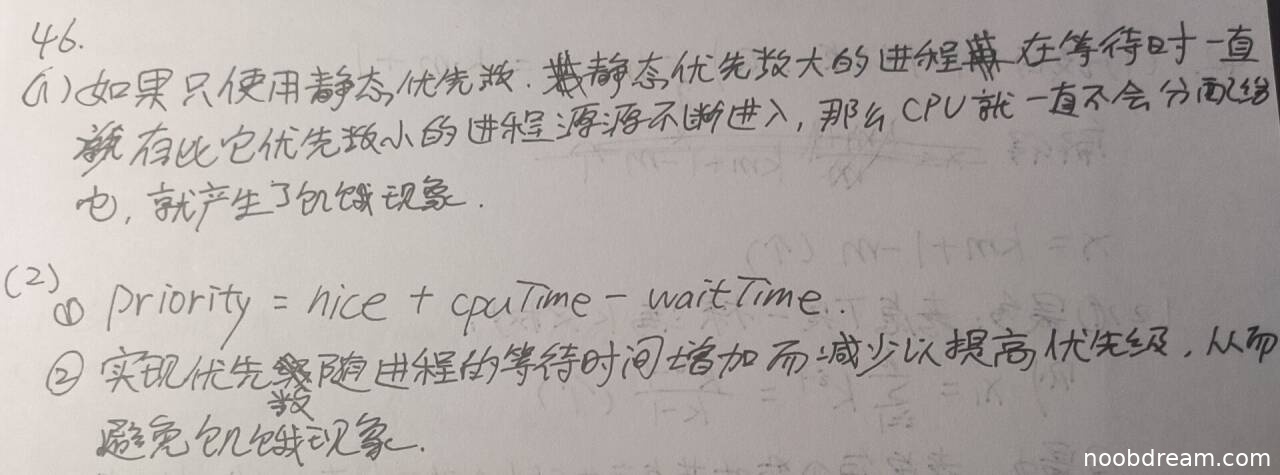 46.
(1)如果只使用静态优先数.静态优先数大的进程在等待时一直
有比它优先数小的进程源源不断进入,那么CPU就一直不会分配给
它,就产生了饥饿现象.
(2)
① priority = nice + cpuTime - waitTime.
② 实现优先数随进程的等待时间增加而减少以提高优先级.从而
避免饥饿现象.
noobdream.com